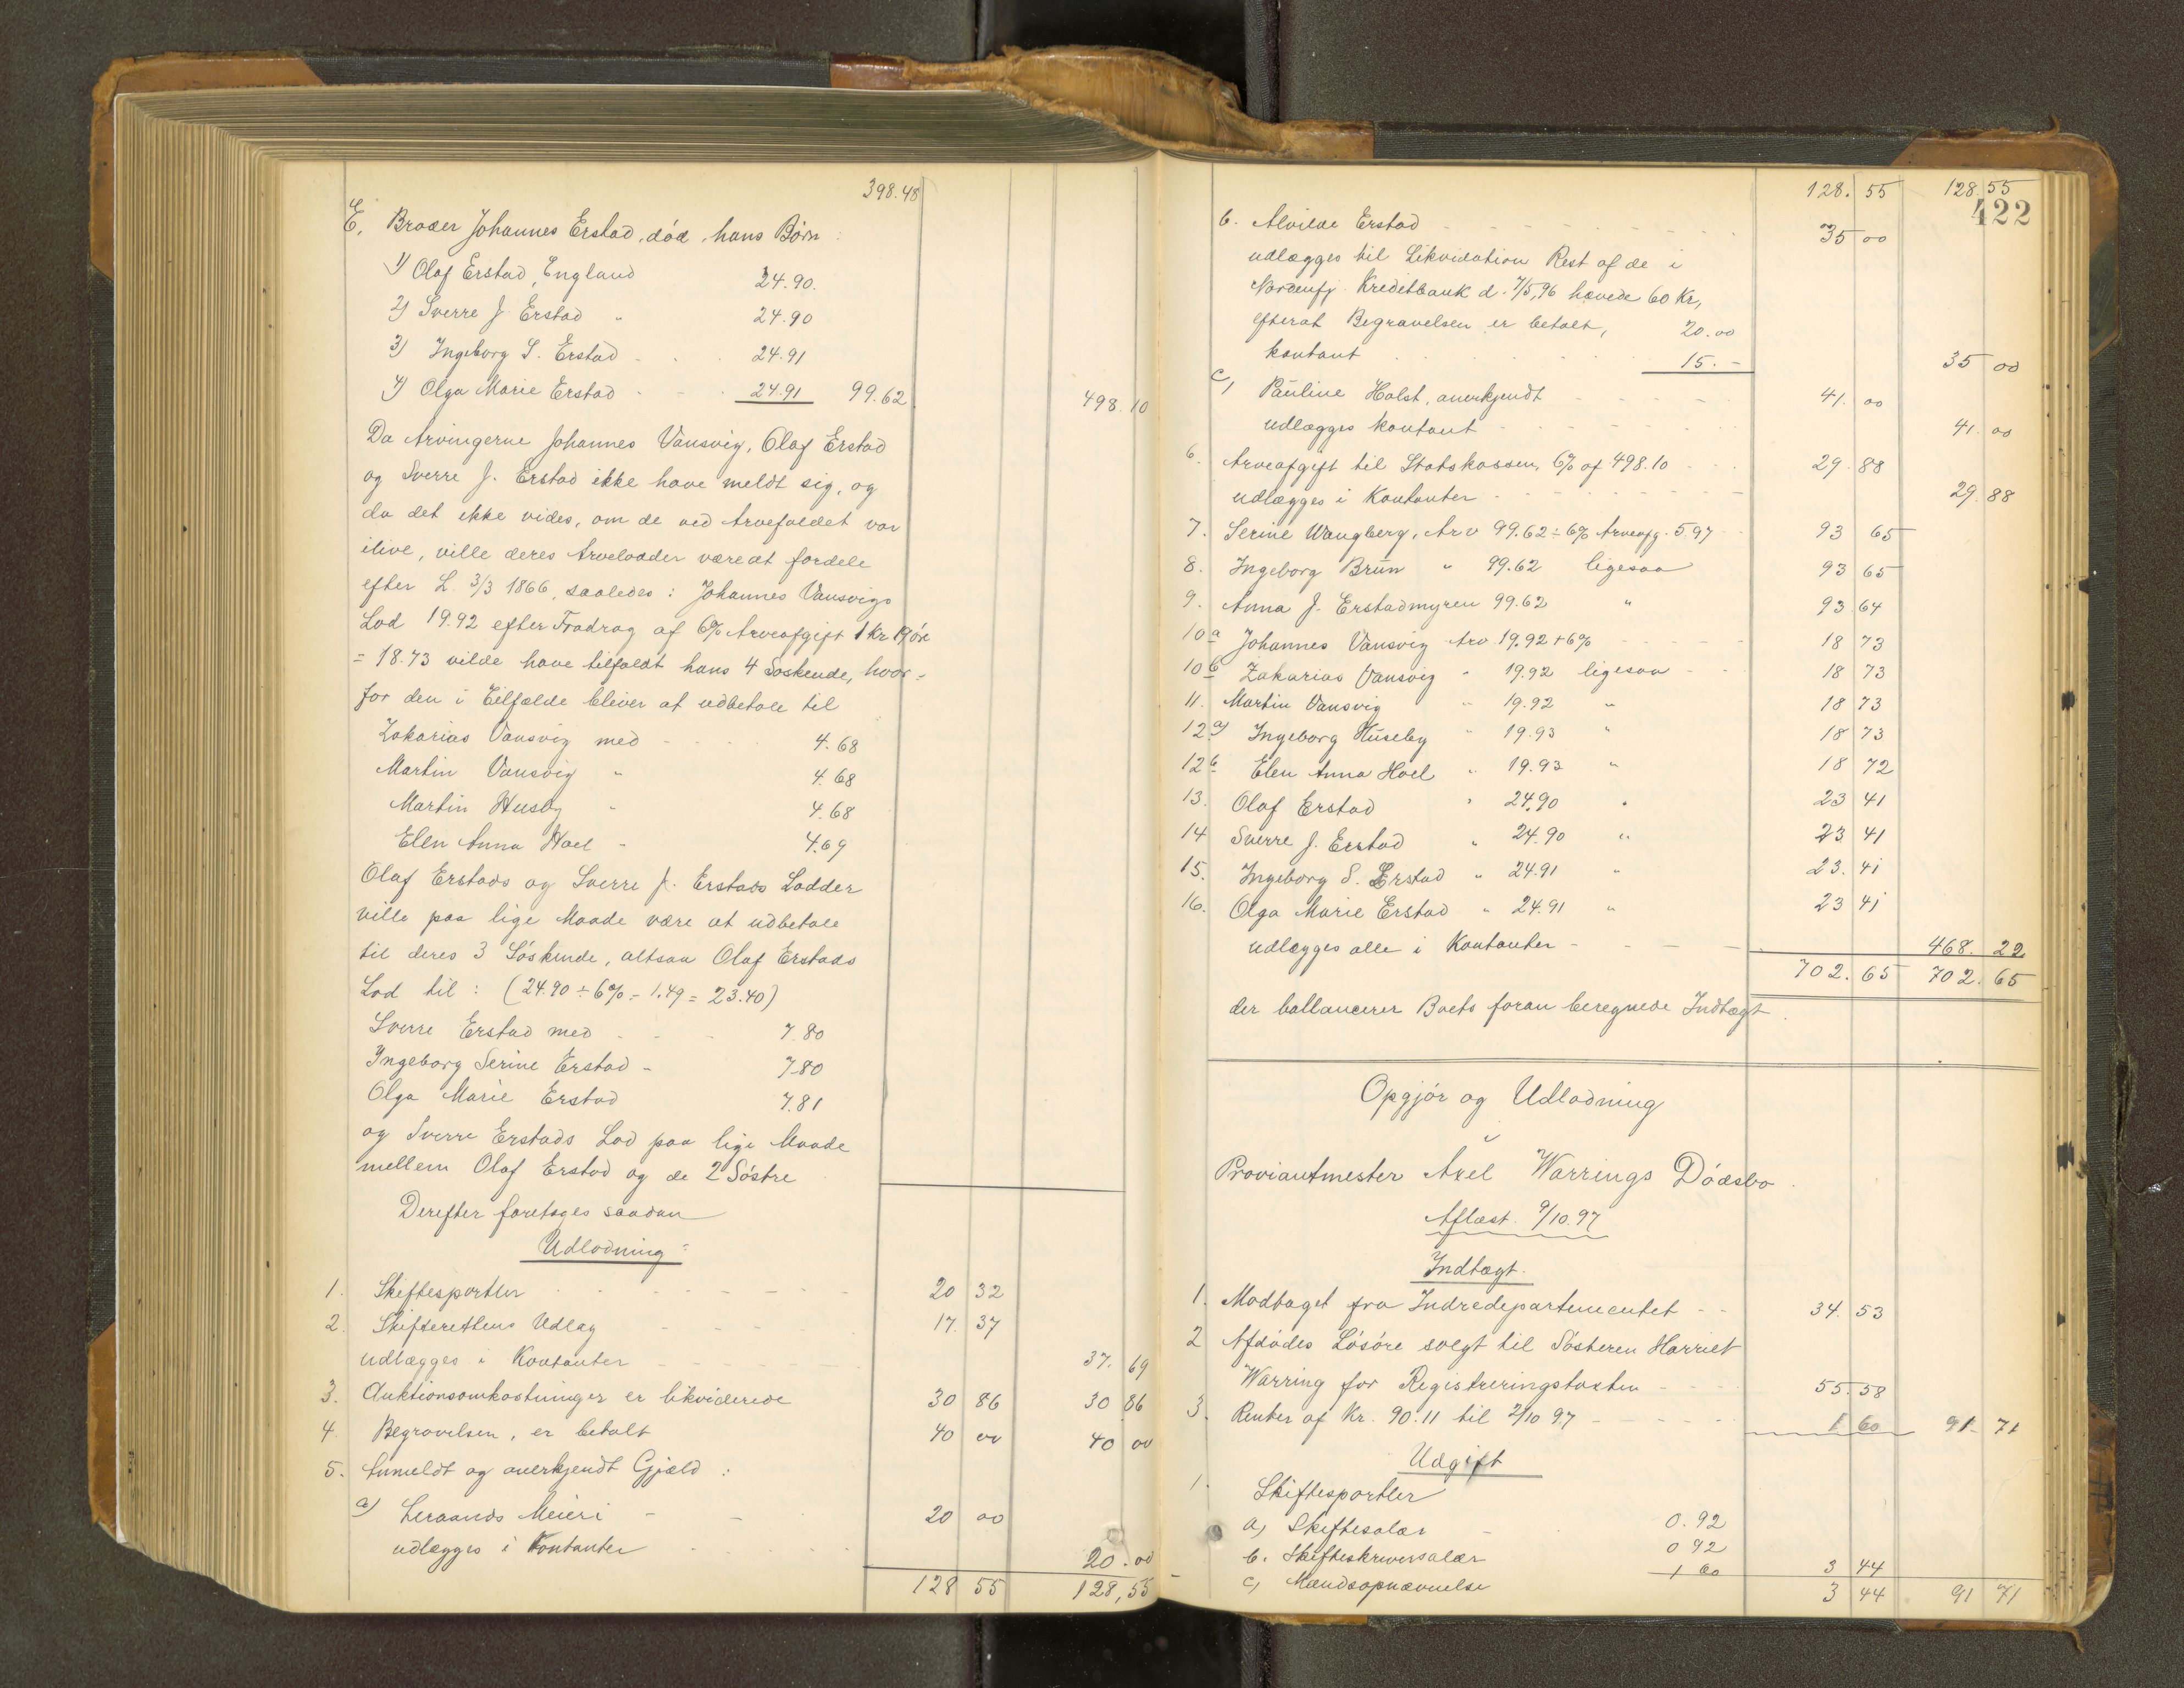 398.48
E. Broder Johannes Erstad, død, hans Børn:
1) Olaf Erstad, England 24.90.
2) Sverre J. Erstad " 24.90
3) Ingeborg S. Erstad 24.91
4) Olga Marie Erstad 24.91 99.62 498.10
Da Arvingerne Johannes Vansvig, Olaf Erstad
og Sverre J. Erstad ikke have meldt sig, og
da det ikke vides, om de ved Arvefaldet var
ilive, ville deres Arvelodder være at fordele
efter L. 3/3 1866, saaledes: Johannes Vansvigs
Lod 19.92 efter Fradrag af 6% Arveafgift 1 Kr 19 øre
= 18.73 vilde have tilfaldt hans 4 Søskende, hvor-
for den i Tilfælde bliver at udbetale til
Zakarias Vansvig med 4.68
Martin Vansvig " 4.68
Martin Husby " 4.68
Elen Anna Hoel - 4.69
Olaf Erstads og Sverre J. Erstads Lodder
ville paa lige Maade være at udbetale
til deres 3 Søskende, altsaa Olaf Erstads
Lod til: (24.90 ÷ 6% = 1.49 = 23.40)
Sverre Erstad med 7.80
Ingeborg Serine Erstad - 7.80
Olga Marie Erstad 7.81
og Sverre Erstads Lod paa lige Maade
mellem Olaf Erstad og de 2 Søstre
Derefter foretages saadan
Udlodning:
1. Skiftesportler 20 32
2. Skifterettens Udlæg 17. 37
udlægges i Kontanter 37. 69
3. Auktionsomkostninger er likviderede 30 86 30 86
4. Begravelsen, er betalt 40 00 40 00
5. Anmeldt og anerkjendt Gjæld:
a) Leraands Meieri - 20 00
udlægges i Kontanter 20.00
128 55 128,55
128. 55 128 55
422
b. Alvilde Erstad 35 00
udlægges til Likvidation Rest af de i
Nordenfj. Kreditbank d. 7/5, 96 hævede 60 Kr,
efterat Begravelsen er betalt, 20.00
kontant 15.- 35 00
c) Pauline Holst, anerkjendt 41. 00
udlægges kontant 41. 00
6. Arveafgift til Statskassen, 6% af 498.10 29. 88
udlægges i Kontanter 29. 88
7. Serine Wangberg, Arv 99.62 ÷ 6% Arveafg. 5.97 93 65
8. Ingeborg Brun " 99.62 ligesaa 93 65
9. Anna J. Erstadmyren 99.62 " 93.64
10a Johannes Vansvig Arv 19.92 ÷ 6% 18 73
10b Zakarias Vansvig " 19.92 ligesaa 18 73
11. Martin Vansvig " 19.92 " 18 73
12a) Ingeborg Huseby " 19.93 " 18 73
12b Elen Anna Hoel " 19.93 " 18 72
13. Olaf Erstad " 24.90 " 23 41
14 Sverre J. Erstad " 24.90 " 23 41
15. Ingeborg S. Erstad " 24.91 " 23. 41
16. Olga Marie Erstad " 24.91 " 23 41
udlægges alle i Kontanter - 468. 22
702. 65 702. 65
der ballancerer Boets foran beregnede Indtægt.
Opgjør og Udlodning
i
Proviantmester Axel Warrings Dødsbo.
Aflæst 9/10.97
Indtægt.
1. Modtaget fra Indredepartementet 34. 53
2 Afdødes Løsøre solgt til Søsteren Harriet
Warring for Registreringstaxten 55. 58
3. Renter af Kr. 90.11 til 2/10 97 1 60 91 71
Udgift
1. Skiftesportler
a) Skiftesalær - 0.92
b. Skifteskriversalær 0 92
c) Mændsopnævnelse 1 60 3 44
3 44 91 71